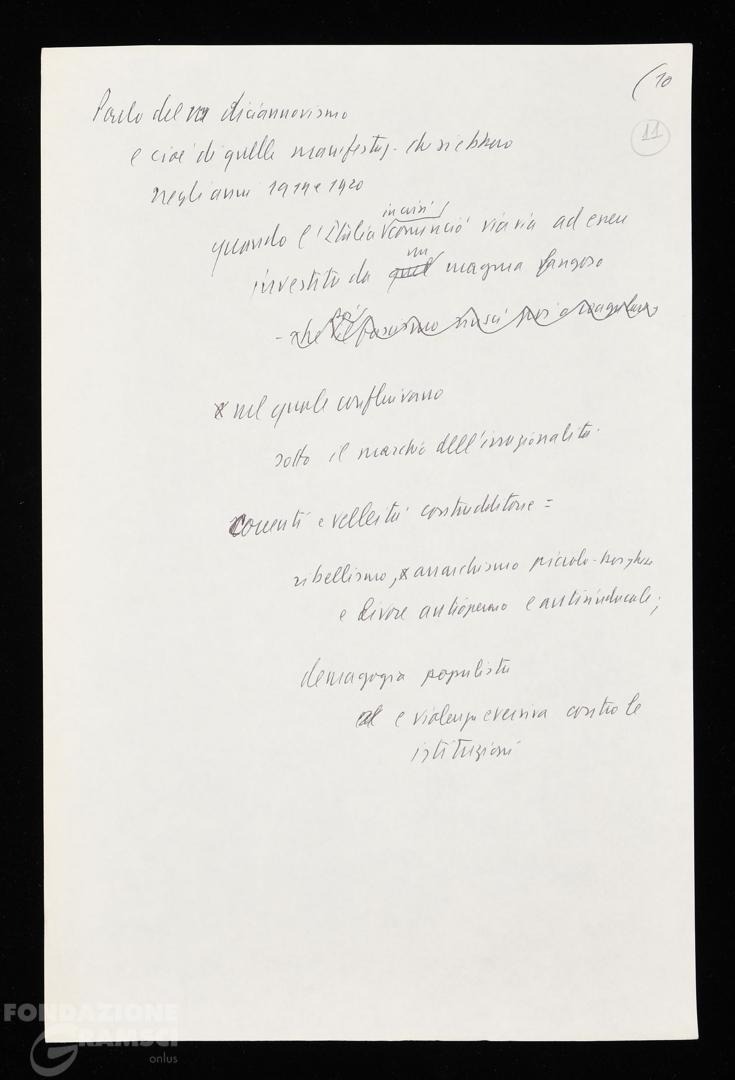 (10
11
Parlo del diciannovismo
e cioè di quelle manifestaz. che si ebbero
negli anni 1919 e 1920
in cui
quando l'Italia cominciò via via ad essere
un
investita da quel magma fangoso
- che il fascismo riuscì poi a coagulare
nel quale confluivano
sotto il marchio dell'irrazionalità.
correnti e velleità contraddittorie =
ribellismo, anarchismo piccolo-borghese
e livore antioperaio e antisindacale;
demagogia populista
e violenza eversiva contro le
istituzioni
FONDAZIONE
GRAMSCI
onlus